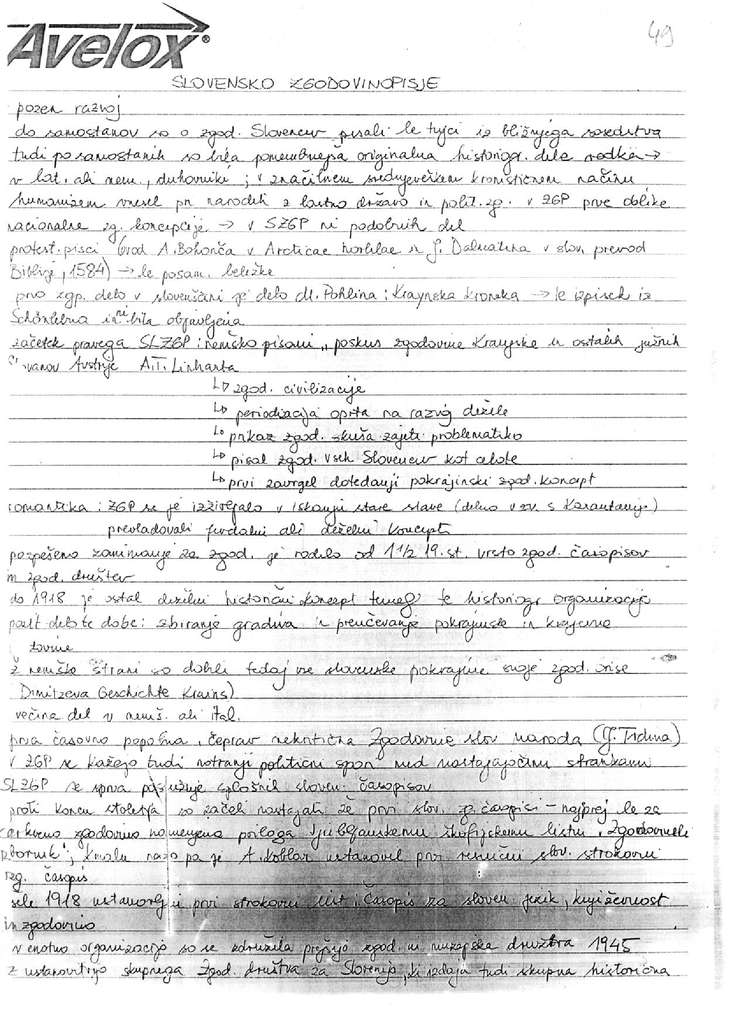 Avelox®
49
SLOVENSKO ZGODOVINOPISJE
pozen razvoj
do samostanov so o zgod. Slovencev pisali le tujci iz bližnjega sosedstva
tudi po samostanih so bila pomembnejša originalna historiogr. dela redka →
v lat. ali nem., duhovniki; v značilnem srednjeveškem kronističnem načinu
humanizem vnesel pri narodih z lastno državo in polit. zg. v ZGP prve oblike
nacionalne zg. koncepcije → v SZGP ni podobnih del
protest. pisci (uvod A. Bohoriča v Arcticae horulae in J. Dalmatina v slov. prevod
Biblije, 1584) → le posam. beležke
prvo zgp. delo v slovenščini je delo M. Pohlina: Kraynska kroneka → le izpisek iz
Schönlebna in ni bila objavljena
začetek pravega SLZGP: nemško pisani "poskus zgodovine Kranjske in ostalih južnih
Slovanov Avstrije A.T. Linharta
↳ zgod. civilizacije
↳ periodizacija oprta na razvoj dežele
↳ prikaz zgod. skuša zajeti problematiko
↳ pisal zgod. vseh Slovencev kot celote
↳ prvi zavrgel dotedanji pokrajinski zgod. koncept
romantika: ZGP se je izživljalo v iskanju stare slave (delno v zv. s Karantanijo)
prevladovali fevdalni ali deželni koncepti
pospešeno zanimanje za zgod. je rodilo od 1 1/2 19. st. vrsto zgod. časopisov
in zgod. društev
do 1918 je ostal deželni historični koncept temelj te historiogr organizacije
delo te dobe: zbiranje gradiva in preučevanje pokrajinske in krajevne
Z nemške strani so dobili tedaj vse slovenske pokrajine svoje zgod. orise
Dimitzeva Geschichte Krains)
večina del v nemš. ali ital.
prva časovno popolna, čeprav nekritična Zgodovina slov naroda (J. Trdina)
v ZGP se kažejo tudi notranji politični spori med nastajajočimi strankami
SLZGP se sprva poslužuje splošnih sloven. časopisov
proti koncu stoletja so začeli nastajati že prvi slov. zg. časopisi – najprej le za
cerkveno zgodovino namenjena priloga Ljubljanskemu škofijskemu listu, "Zgodovinski
zbornik", kmalu nato pa je A. Koblar ustanovil prvi resnični slov. strokovni
zg. časopis
šele 1918 ustanovljen prvi strokovni list, Časopis za sloven jezik, književnost
in zgodovino
v enotno organizacijo so se združila prejšnja zgod. in muzejska društva 1945
z ustanovitvijo skupnega Zgod. društva za Slovenijo, ki izdaja tudi skupna historična